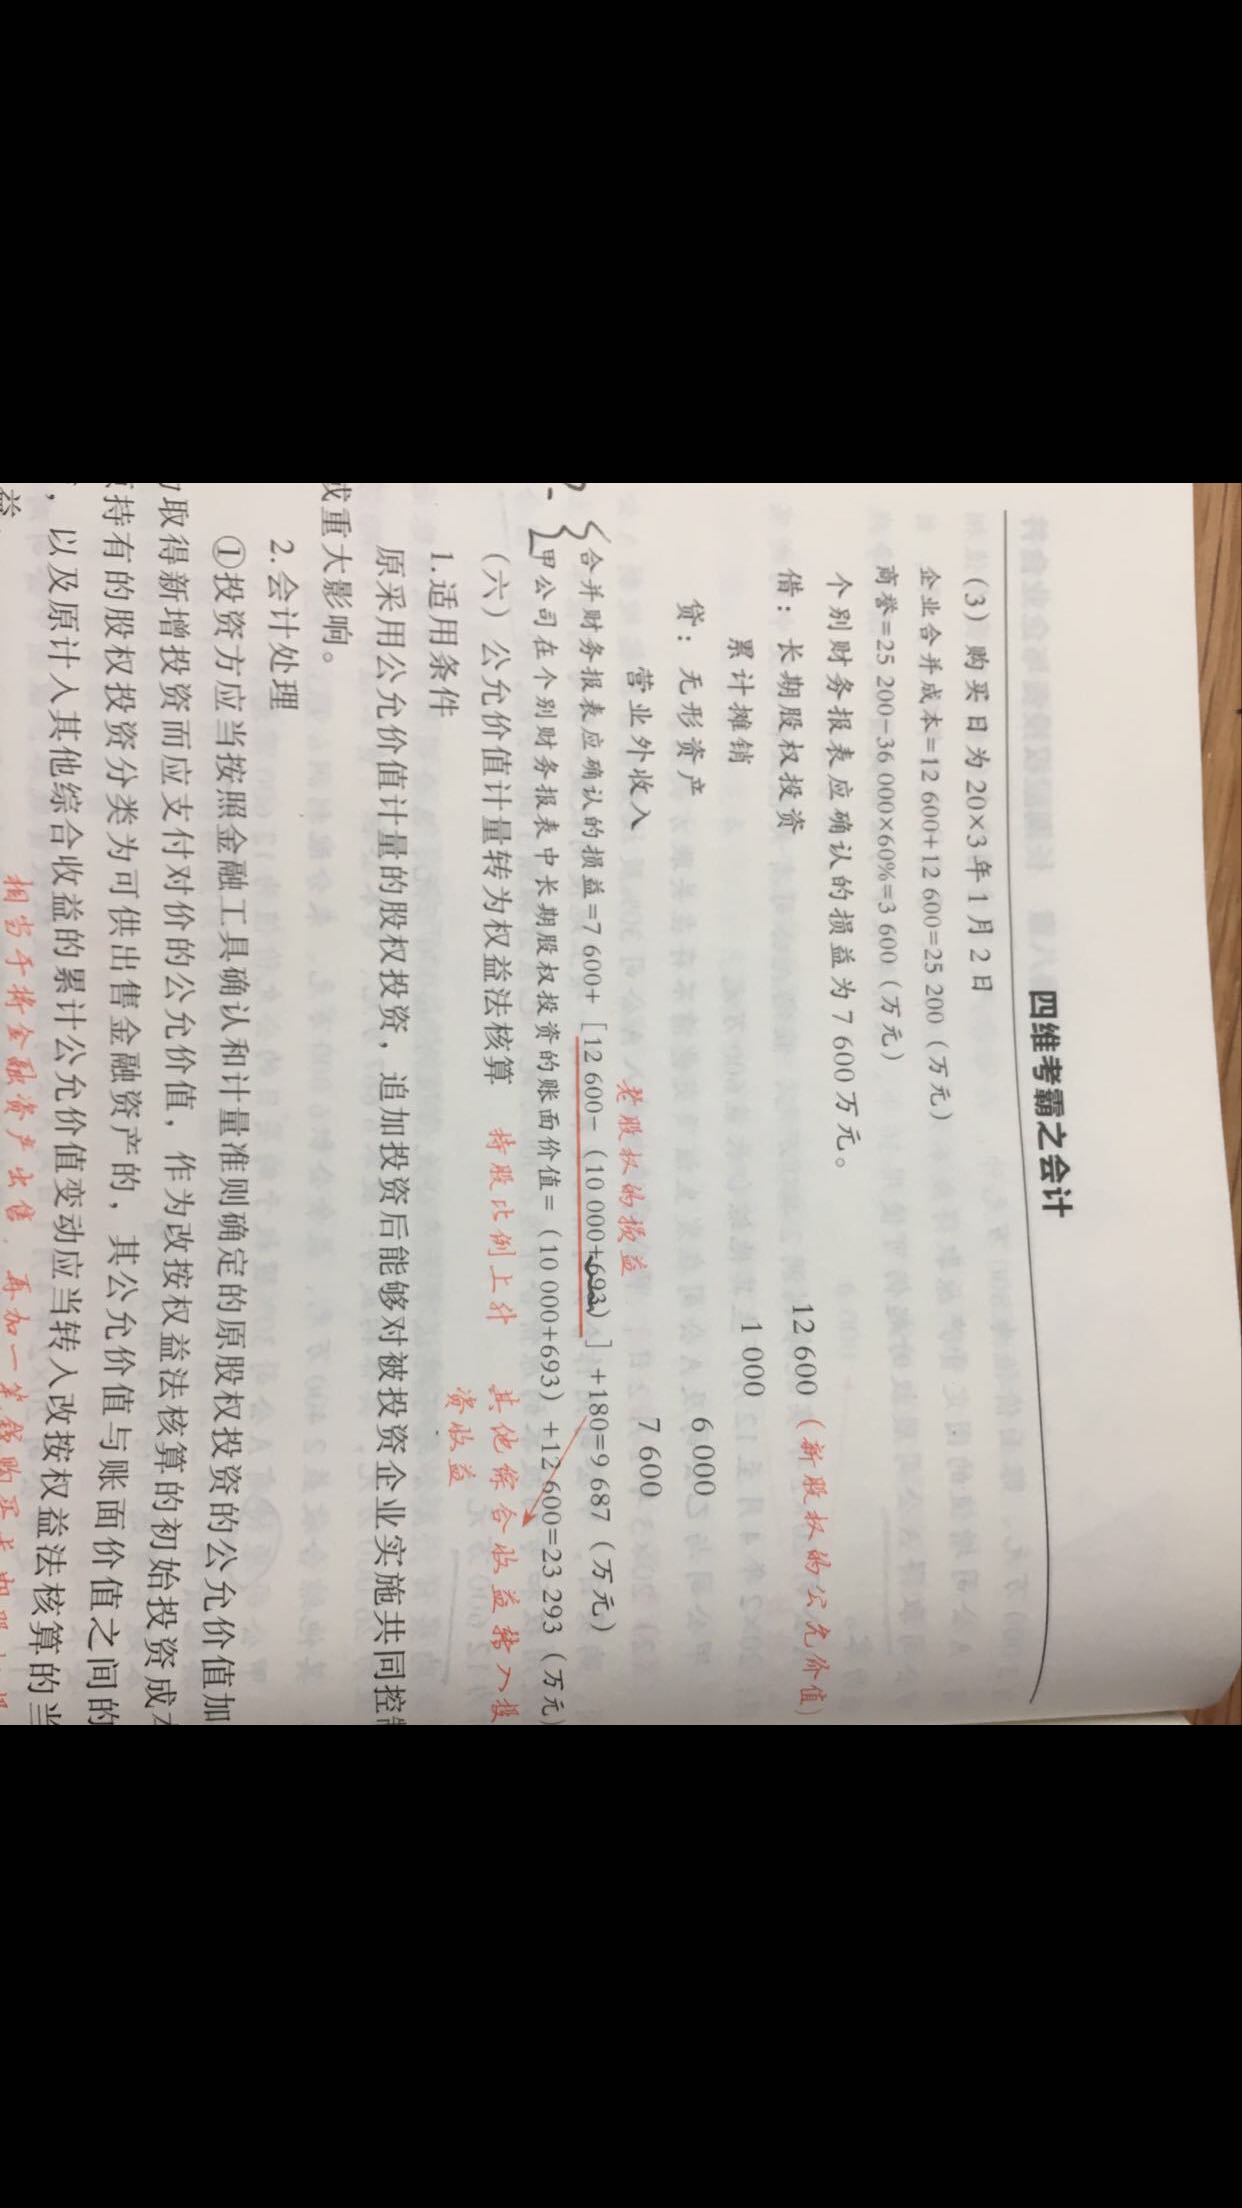 四维考霸之会计
(3)购买日为20×3年1月2日
企业合并成本=12 600+12 600=25 200(万元)
商誉=25 200-36 000×60%=3 600(万元)
个别财务报表应确认的损益为7 600万元。
借：长期股权投资 12 600(新股权的公允价值)
累计摊销 1 000
贷：无形资产 6 000
营业外收入 7 600
老股权的损益
合并财务报表应确认的损益=7 600+[12 600-(10 000+693)]+180=9 687(万元)
甲公司在个别财务报表中长期股权投资的账面价值=(10 000+693)+12 600=23 293(万元)
(六)公允价值计量转为权益法核算 持股比例上升 其他综合收益转入投
资收益
1.适用条件
原采用公允价值计量的股权投资，追加投资后能够对被投资企业实施共同控制
或重大影响。
2.会计处理
①投资方应当按照金融工具确认和计量准则确定的原股权投资的公允价值加
取得新增投资而应支付对价的公允价值，作为改按权益法核算的初始投资成本
持有的股权投资分类为可供出售金融资产的，其公允价值与账面价值之间的
，以及原计入其他综合收益的累计公允价值变动应当转入改按权益法核算的当
益
相当于将金融资产出售，再加一笔钱购买